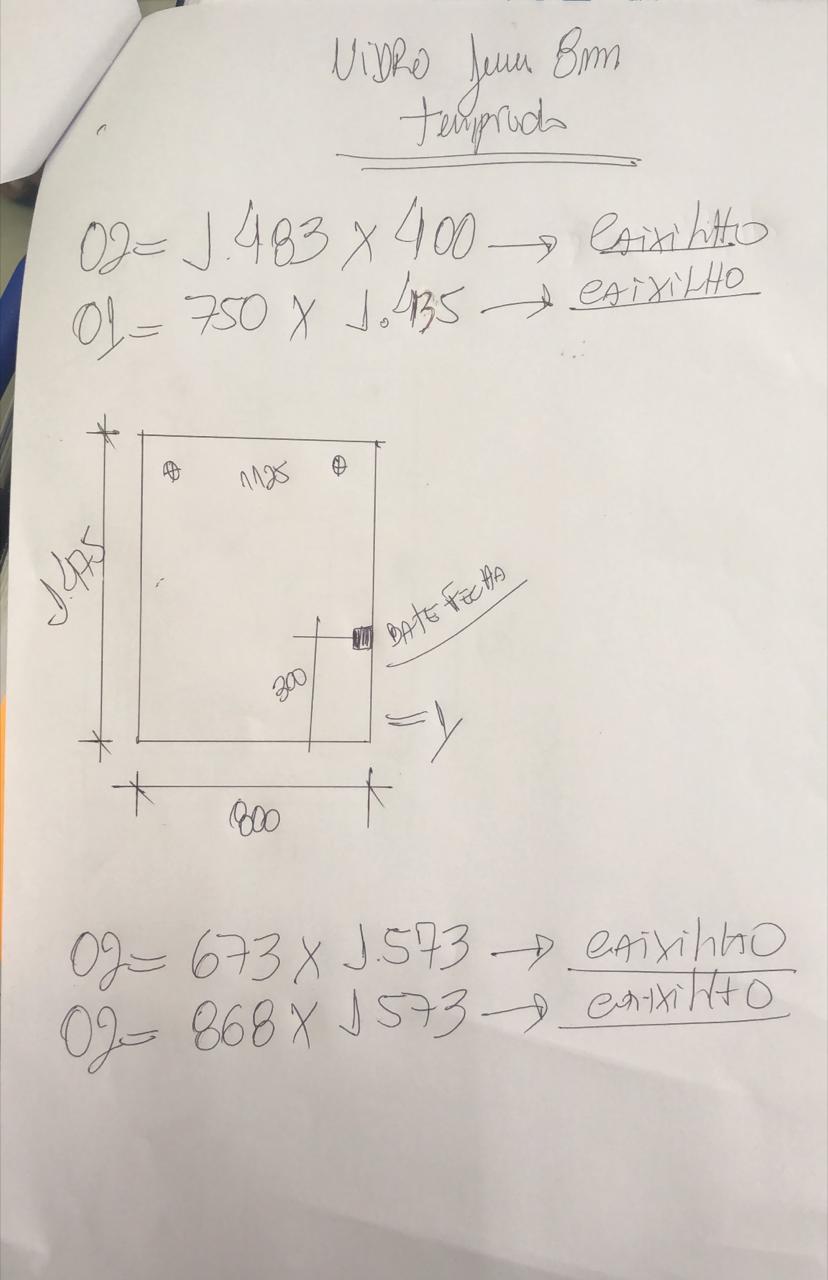 VIDRO 8mm
temprado
02= 1.483 X 400 → CAIXILHO
01= 750 X 1.435 → CAIXILHO
1125
1.475
BATE FECHA
300
=1
800
02= 673 X 1.573 → CAIXILHO
02= 868 X 1573 → CAIXILHO